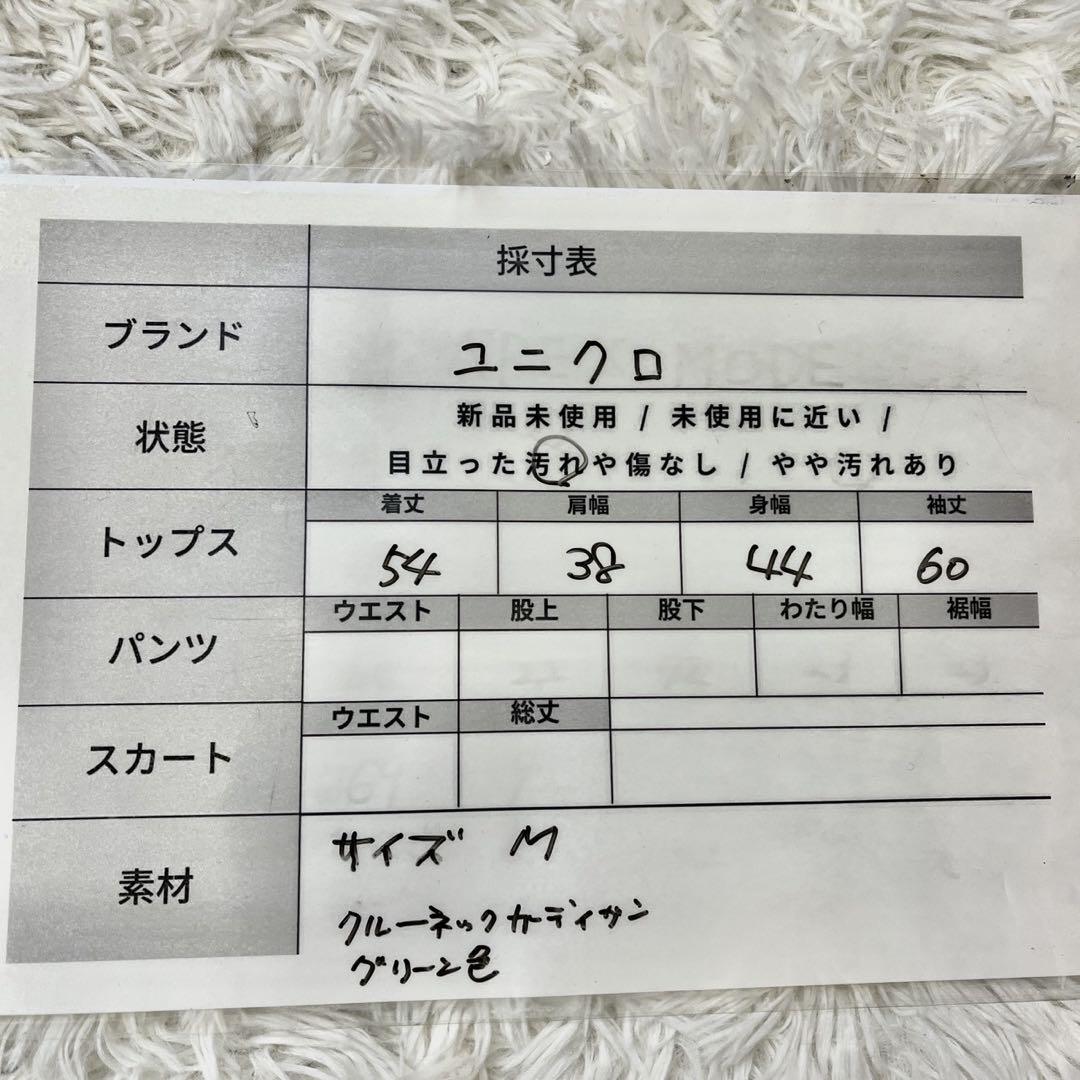 採寸表
ブランド
ユニクロ
状態
新品未使用 / 未使用に近い /
目立った汚れや傷なし / やや汚れあり
トップス
着丈 肩幅 身幅 袖丈
54 38 44 60
パンツ
ウエスト 股上 股下 わたり幅 裾幅
スカート
ウエスト 総丈
素材
サイズ M
クルーネックカーディガン
グリーン色